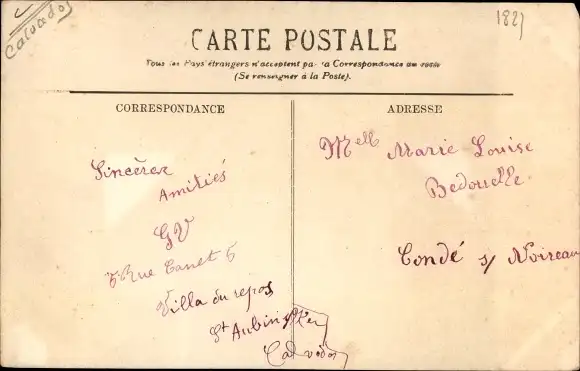 Calvados
1827
CARTE POSTALE
Tous les Pays étrangers n'acceptent pas la Correspondance au recto
(Se renseigner à la Poste).
CORRESPONDANCE
Sincères
Amitiés
GV
5 Rue Canet 5
Villa du repos
St Aubin s/Mer
Calvados
ADRESSE
Melle Marie Louise
Bedouelle
Condé s/ Noireau